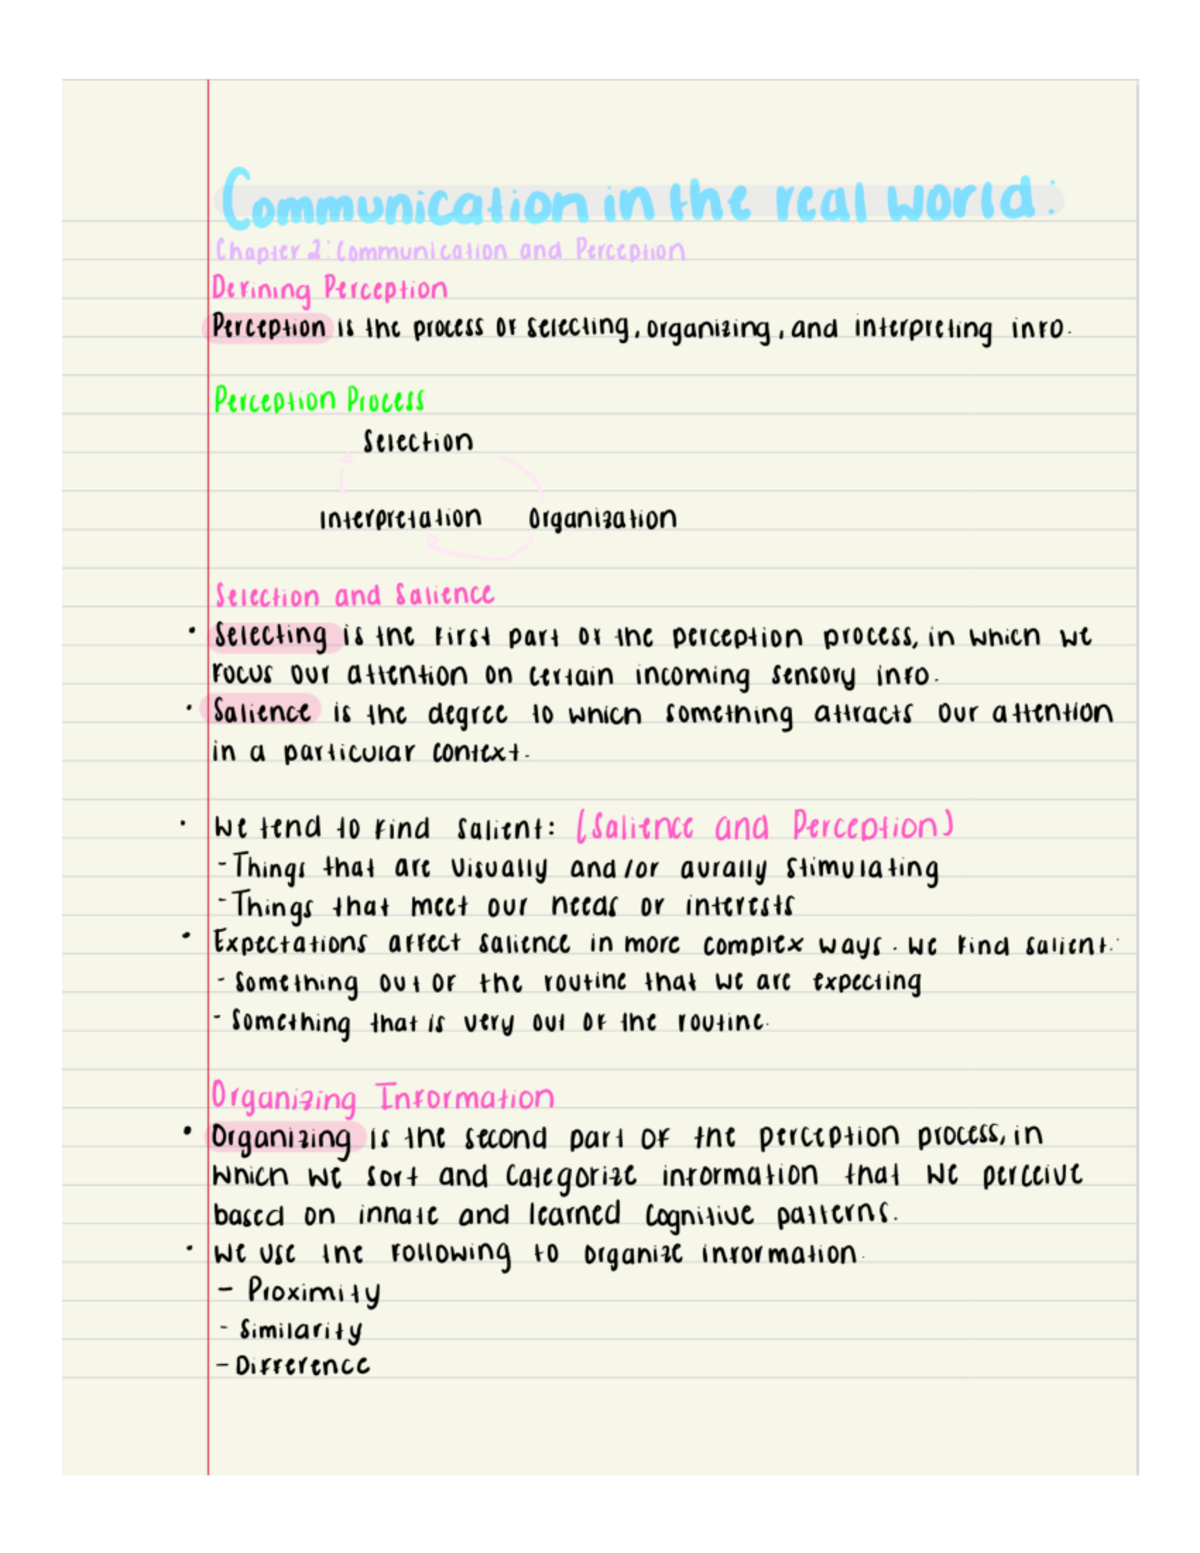 Communication in the real world:
Chapter 2: Communication and Perception
Defining Perception
Perception is the process of selecting, organizing, and interpreting info.
Perception Process
Selection
Interpretation Organization
Selection and Salience
• Selecting is the first part of the perception process, in which we
focus our attention on certain incoming sensory info.
• Salience is the degree to which something attracts our attention
in a particular context.
• We tend to find salient: (Salience and Perception)
- Things that are visually and/or aurally stimulating
- Things that meet our needs or interests
• Expectations affect salience in more complex ways. We find salient:
- Something out of the routine that we are expecting
- Something that is very out of the routine.
Organizing Information
• Organizing is the second part of the perception process, in
which we sort and categorize information that we perceive
based on innate and learned cognitive patterns.
• We use the following to organize information.
- Proximity
- Similarity
- Difference